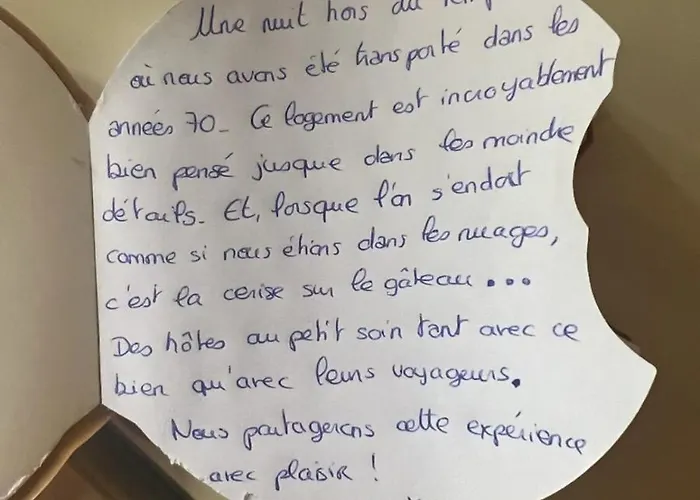 Une nuit hors du temps
où nous avons été transporté dans les
années 70_ Ce logement est incroyablement
bien pensé jusque dans les moindre
détails. Et, lorsque l'on s'endort
comme si nous étions dans les nuages,
c'est la cerise sur le gâteau...
Des hôtes au petit soin tant avec ce
bien qu'avec leurs voyageurs.
Nous partagerons cette expérience
avec plaisir !